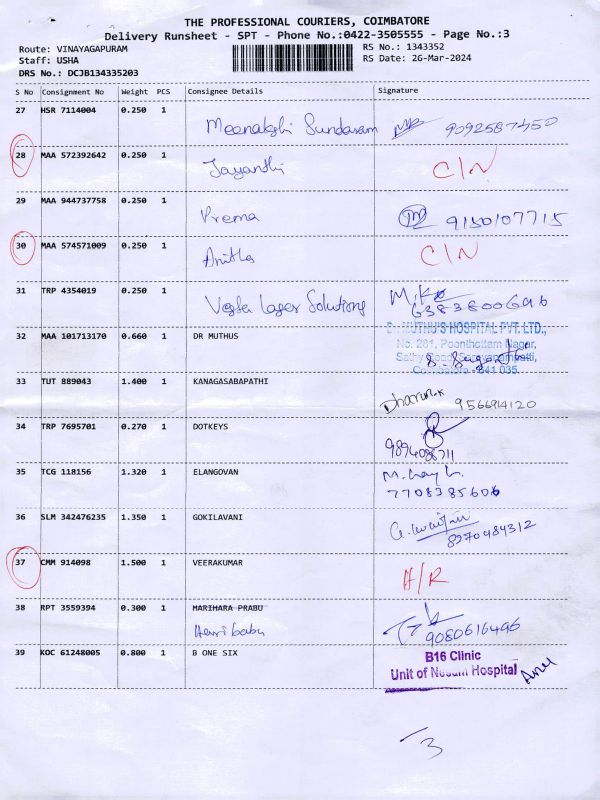 THE PROFESSIONAL COURIERS, COIMBATORE
Delivery Runsheet - SPT - Phone No.:0422-3505555 - Page No.:3
Route: VINAYAGAPURAM RS No.: 1343352
Staff: USHA RS Date: 26-Mar-2024
DRS No.: DCJB134335203
S No Consignment No Weight PCS Consignee Details Signature
27 HSR 7114004 0.250 1
Meenakshi Sundaram 9092587450
28 MAA 572392642 0.250 1
Jayanthi C/N
29 MAA 944737758 0.250 1
Prema 9150107715
30 MAA 574571009 0.250 1
Anitha C/N
31 TRP 4354019 0.250 1
Laser Solutions 6383800696
32 MAA 101713170 0.660 1 DR MUTHUS
Dr. MUTHU'S HOSPITAL PVT. LTD.,
No. 281, Poonthottam Nagar,
Sathy Road, Saravanampatti,
Coimbatore - 641 035.
33 TUT 889043 1.400 1 KANAGASABAPATHI
Dharun.K 9566914120
34 TRP 7695701 0.270 1 DOTKEYS
9894088711
35 TCG 118156 1.320 1 ELANGOVAN
7708385606
36 SLM 342476235 1.350 1 GOKILAVANI
8270484312
37 CMM 914098 1.500 1 VEERAKUMAR
H/R
38 RPT 3559394 0.300 1 MARIHARA PRABU
Hari babu 9080616496
39 KOC 61248005 0.800 1 B ONE SIX
B16 Clinic
Unit of Nesam Hospital
3